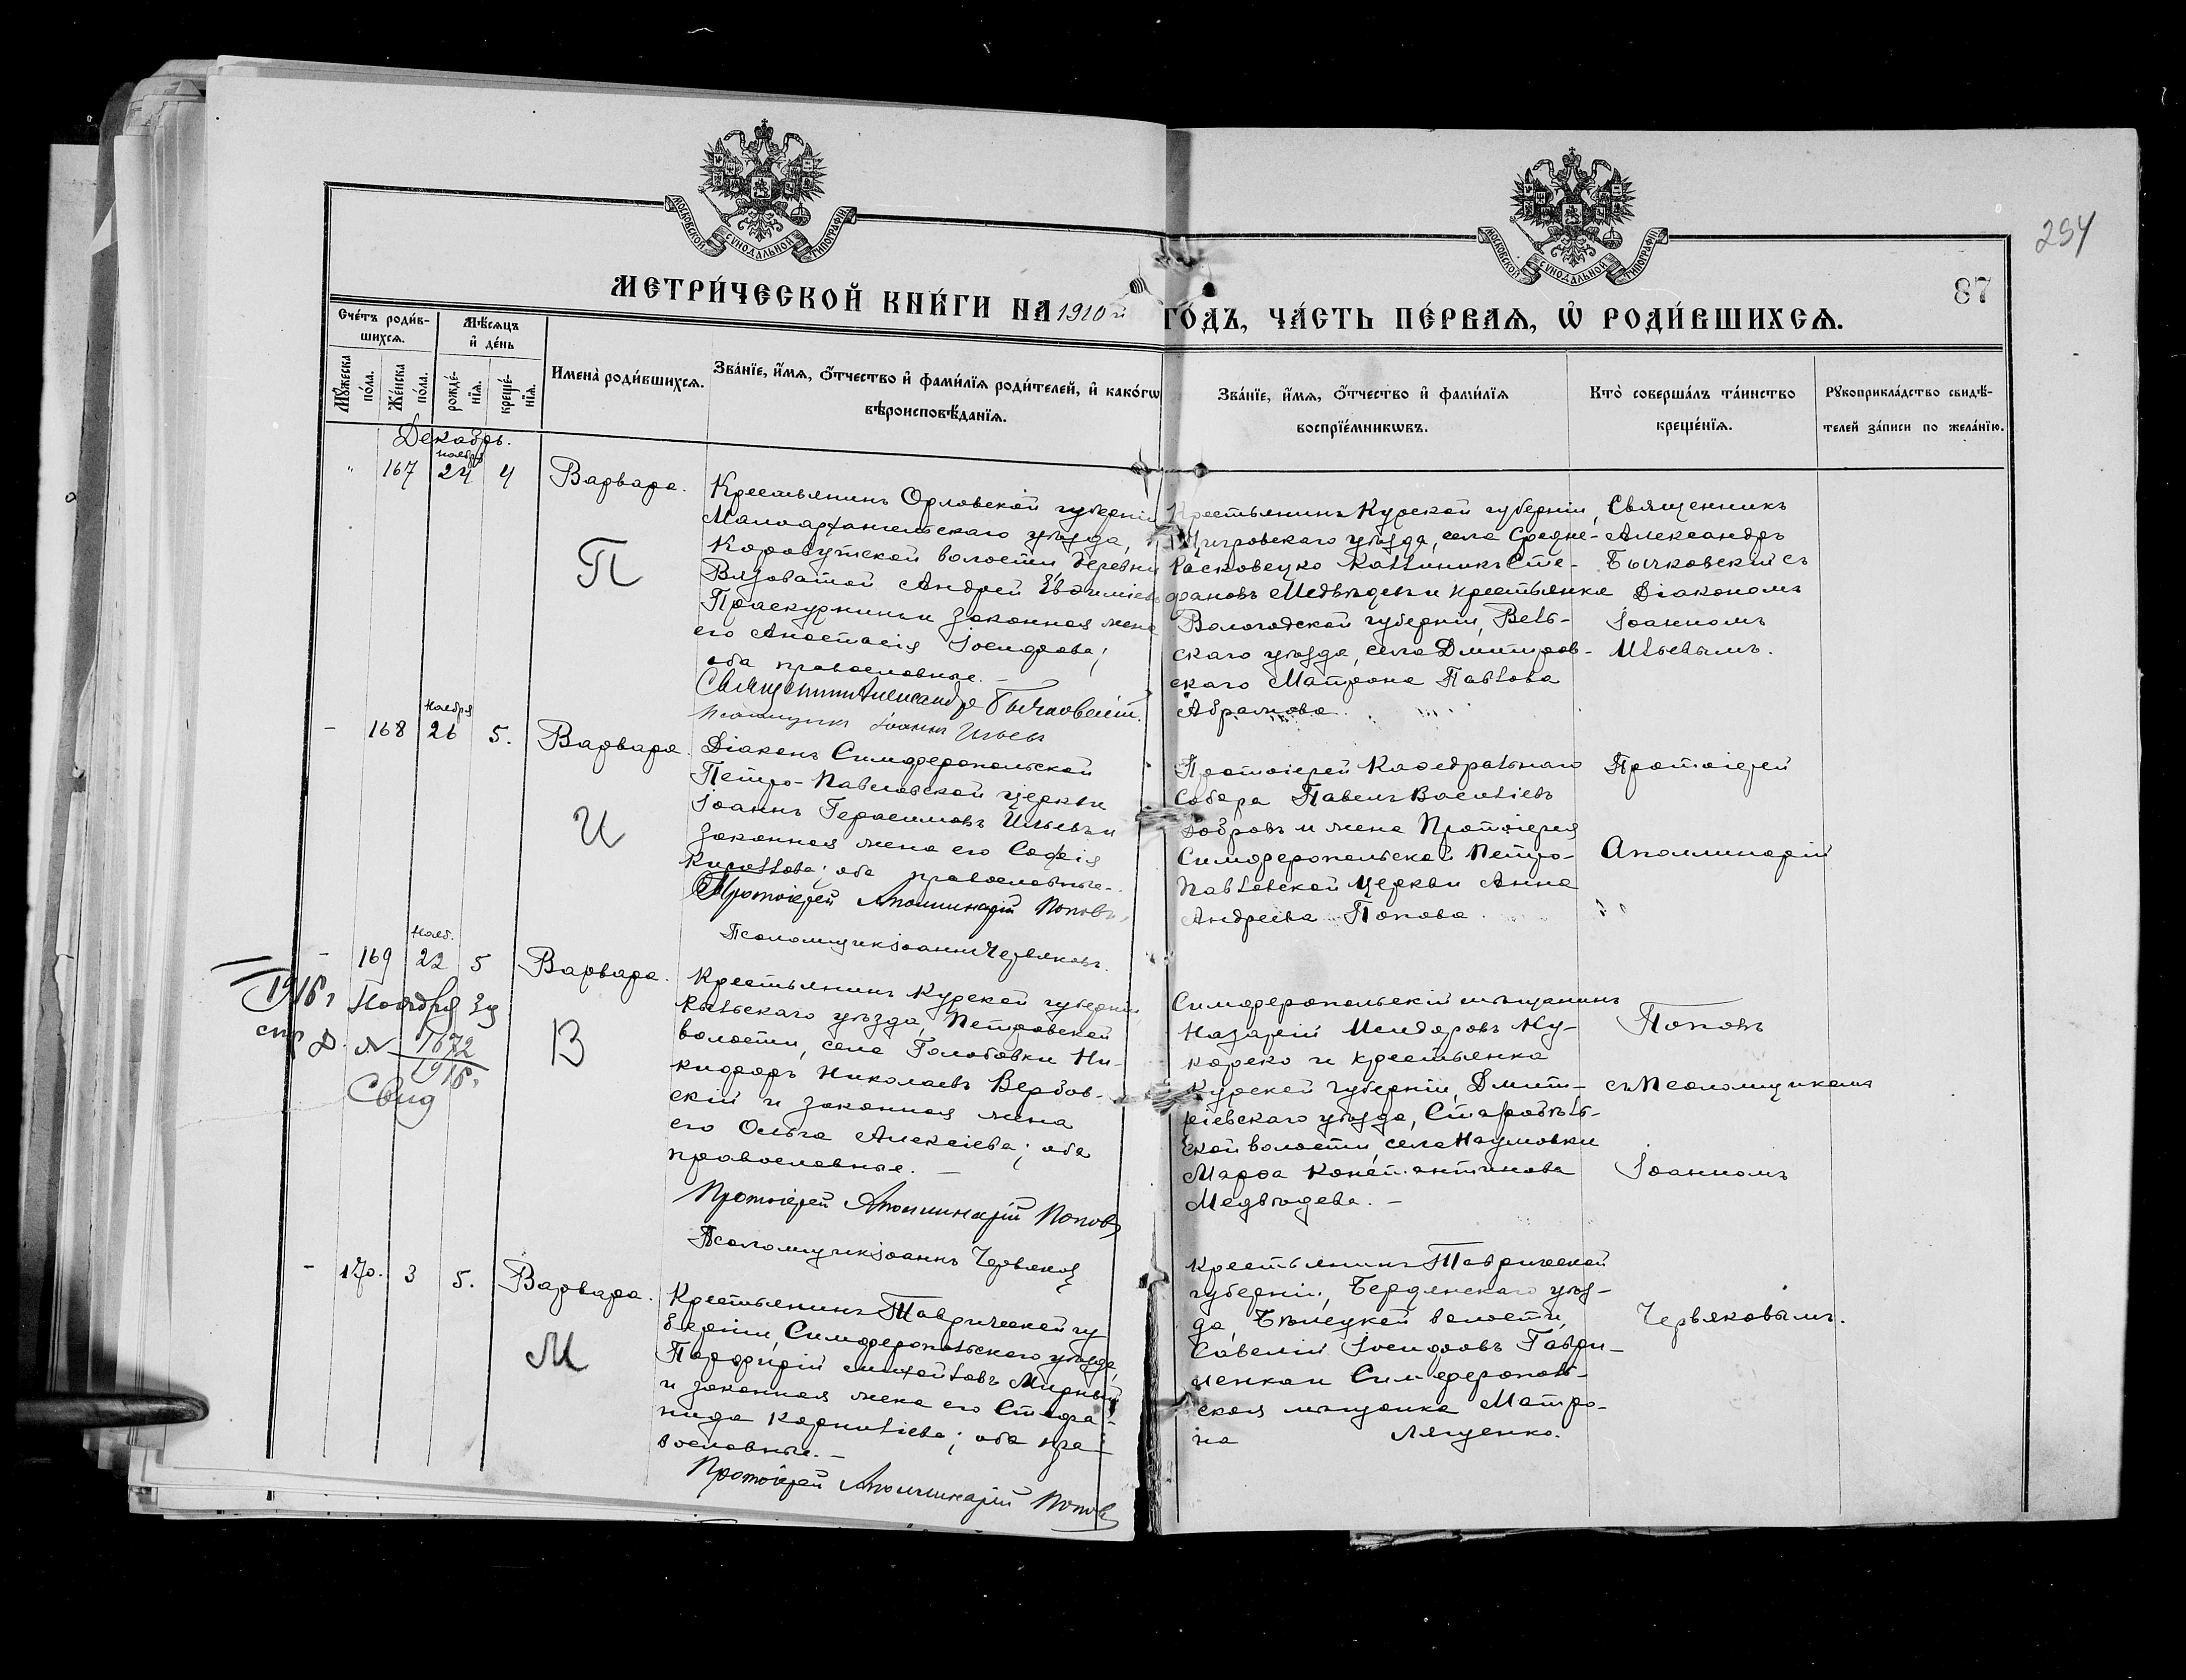 МОСКОВСКОЙ СѴНОДАЛЬНОЙ ТИПОГРАФІИ
МОСКОВСКОЙ СѴНОДАЛЬНОЙ ТИПОГРАФІИ
254
87
МЕТРИ́ЧЕСКОЙ КНИ́ГИ НА 1910 й ГО́ДЪ, ЧА́СТЬ ПЕ́РВАѦ, Ѡ РОДИ́ВШИХСѦ.
Сче́тъ роди́в-
шихсѧ.
Мѣ́сѧцъ
и҆ де́нь
Мꙋ́жеска
по́ла.
Же́нска
по́ла.
рожде́-
нїѧ.
креще́-
нїѧ.
Имена̀ роди́вшихсѧ.
Зва́нїе, и҆́мѧ, ѻ҆́тчество и҆ фами́лїѧ роди́телей, и҆ како́гѡ
вѣроисповѣ́данїѧ.
Зва́нїе, и҆́мѧ, ѻ҆́тчество и҆ фами́лїѧ
воспрїе́мникѡвъ.
Кто̀ соверша́лъ та́инство
креще́нїѧ.
Рꙋкоприкла́дство свидѣ́-
телей за́писи по жела́нїю.
Декабрь.
ноября
" 167 24 4 Варвара.
П
Крестьянинъ Орловской губерніи
Малоархангельскаго уѣзда,
волости деревни
Вязоватой Андрей Евфиміевъ
Проскурнинъ и законная жена
его Анастасія Іосифова;
оба православные. —
Священникъ Александръ Бычковскій.
Псаломщикъ Іоаннъ Ильевъ
Крестьянинъ Курской губерніи,
Щигровскаго уѣзда, села Средне-
Расковецко Каллиникъ Сте-
фановъ Медвѣдевъ и крестьянка
Вологодской губерніи, Вель-
скаго уѣзда, села Дмитров-
скаго Матрона Павлова
Абрамова.
Священникъ
Александръ
Бычковскій съ
Діакономъ
Іоанномъ
Ильевымъ.
Ноября
- 168 26 5. Варвара.
И
Діаконъ Симферопольской
Петро-Павловской церкви
Іоаннъ Герасимовъ Ильевъ и
законная жена его Софія
Кириллова; оба православные. -
Протоіерей Аполлинарій Поповъ,
Псаломщикъ Іоаннъ Червяковъ.
Протоіерей Каѳедральнаго
Собора Павелъ Васильевъ
Добровъ и жена Протоіерея
Симферопольской Петро-
Павловской церкви Анна
Андреева Попова.
Протоіерей
Аполлинарій
Нояб.
- 169 22 5 Варвара.
1916 г Ноября 3 д
№ 1672
1916 г.
Свид
В
Крестьянинъ Курской губерніи
Рыльскаго уѣзда, Петровской
волости, села Голубовки Ни-
кифоръ Николаевъ Вербов-
скій и законная жена
его Ольга Алексіева; оба
православные. —
Протоіерей Аполлинарій Поповъ
Псаломщикъ Іоаннъ Червяковъ
Симферопольскій мѣщанинъ
Назарій Исидоровъ Ку-
кареко и крестьянка
Курской губерніи, Дмит-
ріевскаго уѣзда, Старобѣль-
ской волости, села Наумовки
Марѳа Константинова
Медвѣдева. —
Поповъ
съ Псаломщикомъ
Іоанномъ
- 170. 3 5. Варвара.
М
Крестьянинъ Таврической гу
берніи, Симферопольскаго уѣзда,
Порфирій Михайловъ Мирный
и законная жена его Стефа-
нида Корнильева; оба пра-
вославные. —
Протоіерей Аполлинарій Поповъ
Крестьянинъ Таврической
губерніи, Бердянскаго уѣз-
да, волости,
Савелій Іосифовъ Гаври-
ленко и Симферополь-
ская мѣщанка Матро-
на Лященко.
Червяковымъ.